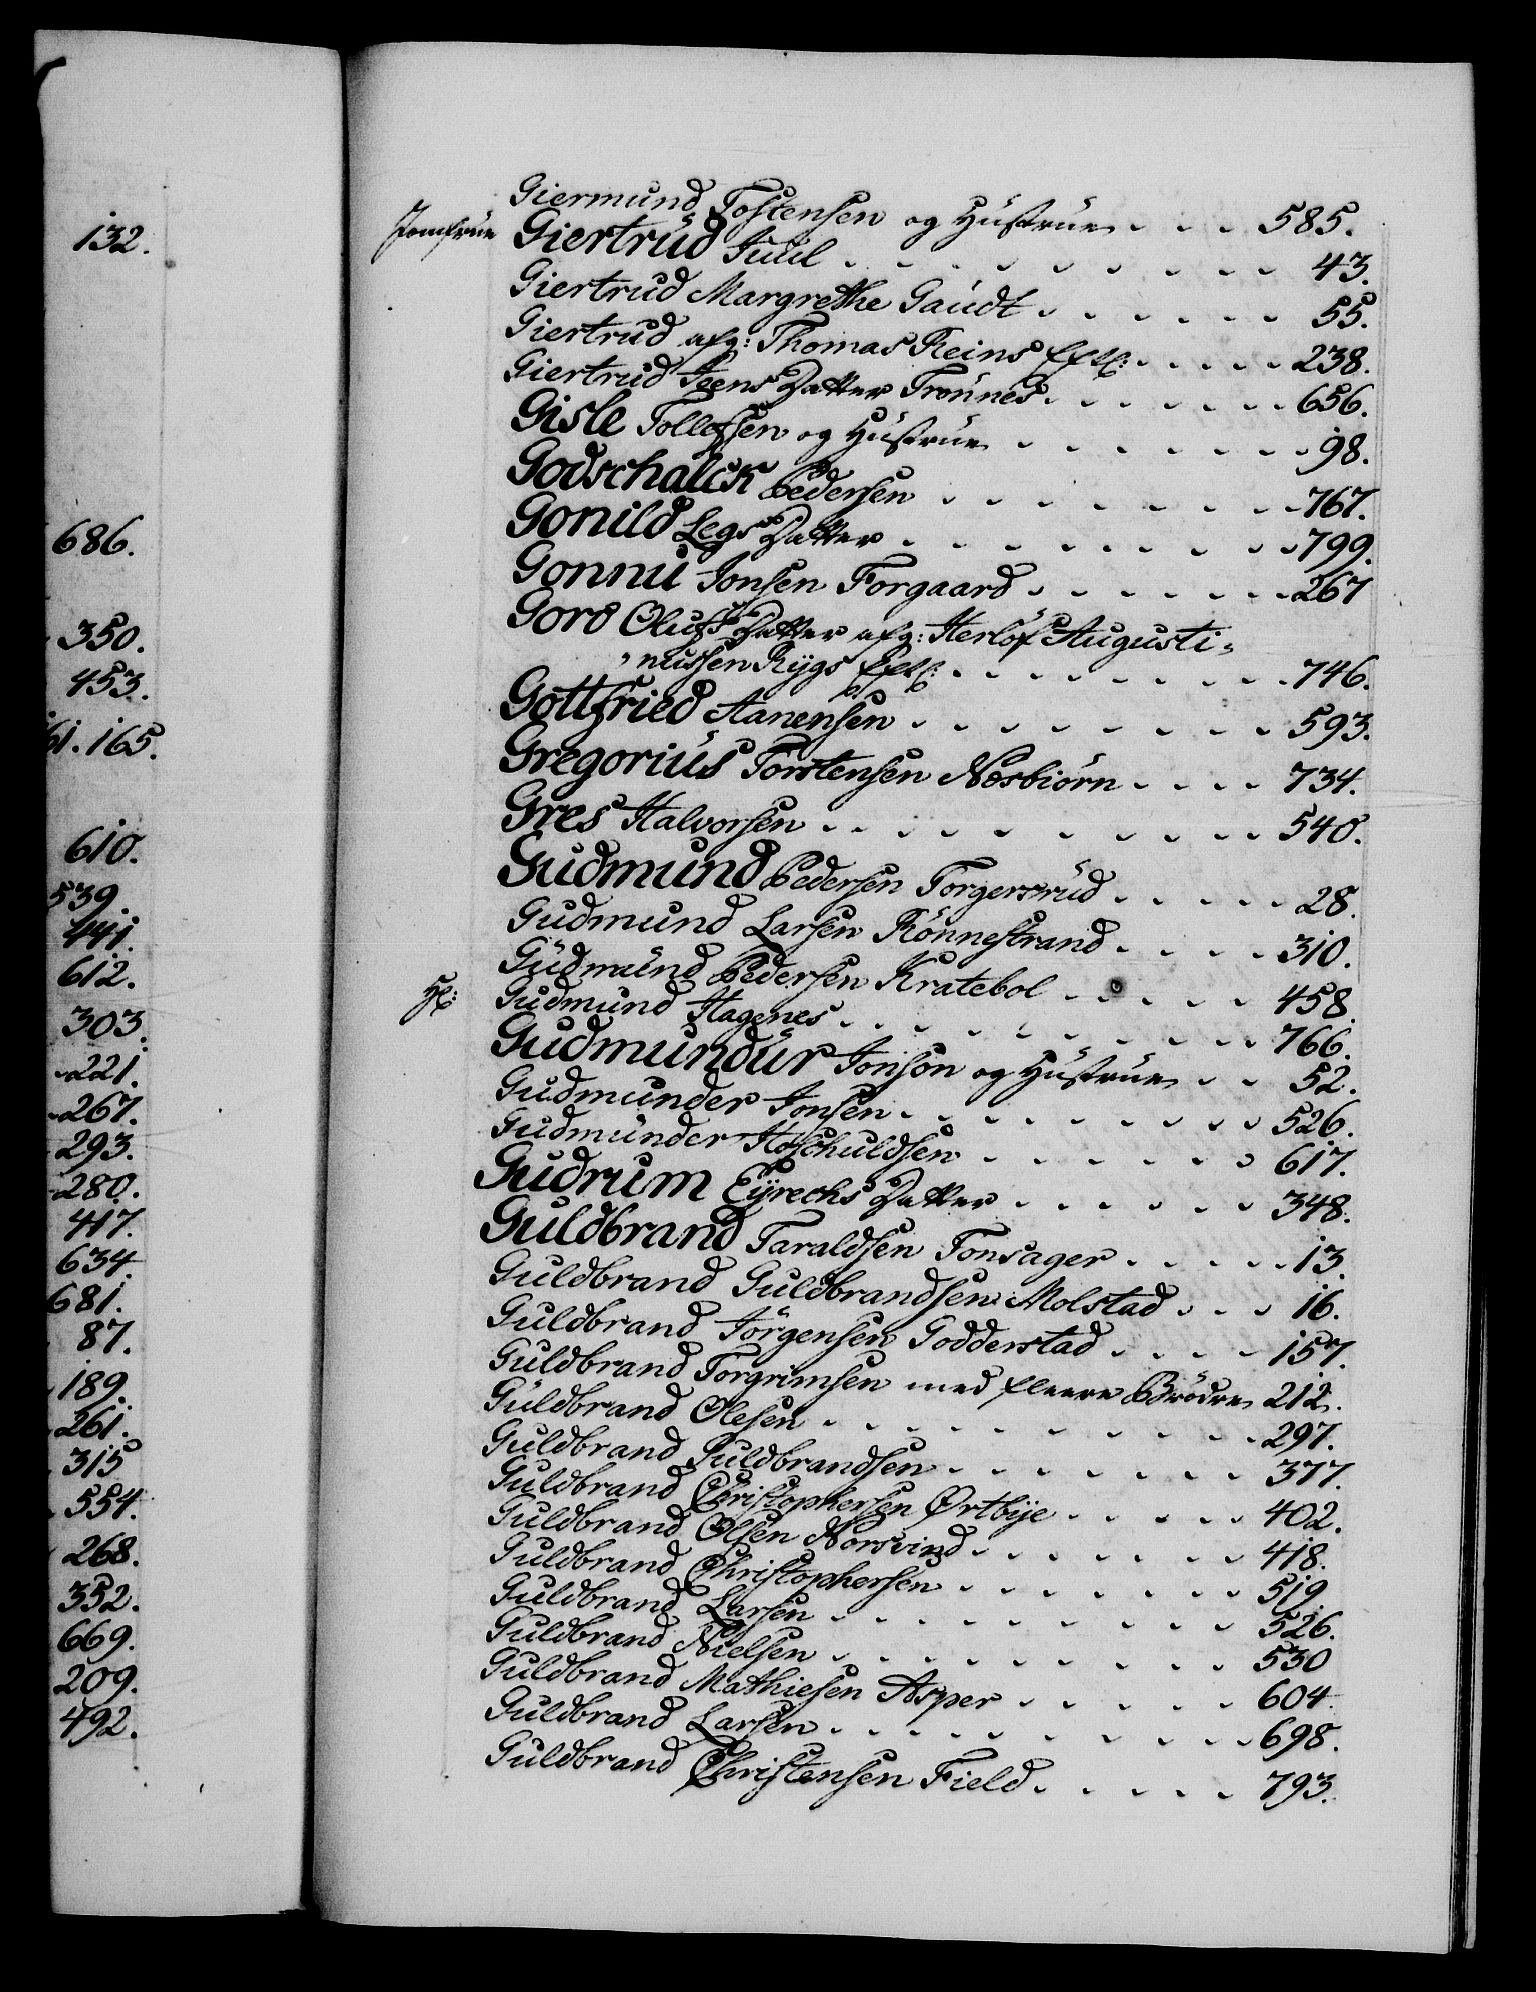 132.
686.
350.
453.
61. 165.
610.
539.
441.
612.
303.
221.
267.
293.
280.
417.
634.
681.
87.
189.
261.
315
554.
268.
352.
669.
209.
492.
Giermund Tostensen og Hustrue . . . 585.
Jomfrue Giertrud Juul . . . . . . . . . 43.
Giertrud Margrethe Gaudt . . . . . . 55.
Giertrud afg: Thomas Reins Efterl: . . . . . 238.
Giertrud Jens Datter Trønnes . . . . . . . 656.
Gisle Tollefsen og Hustrue . . . . . . . 98.
Godschalck Pedersen . . . . . . . . 767.
Gonild Legs Datter . . . . . . . . . 799.
Gonnu Jonsen Forgaard . . . . . . . 267
Goro Olufs Datter afg: Herlof Augusti-
nussen Rygs Efterl: . . . . . . . . . . 746.
Gottfried Aanensen . . . . . . . . 593.
Gregorius Torstensen Næsbiörn . . . . 734.
Gres Halvorsen . . . . . . . . . . . 540.
Gudmund Pedersen Torgersrud . . . . . 28.
Gudmund Larsen Rönnestrand . . . . 310.
Gudmund Pedersen Kratebol . . . . . 458.
Hl: Gudmund Hagenes . . . . . . . . . . 766.
Gudmundur Jonson og Hustrue . . 52.
Gudmunder Jonsen . . . . . . . . . 526.
Gudmunder Hoschuldsen . . . . . . . 617.
Gudrum Eyrechs Datter . . . . . . 348.
Guldbrand Taraldsen Tonsager . . . . . 13.
Guldbrand Guldbrandsen Molstad . . . 16.
Guldbrand Jörgensen Godderstad . . . . 157.
Guldbrand Torgrimsen med fleere Brödre 212.
Guldbrand Olesen . . . . . . . . . . 297.
Guldbrand Guldbrandsen . . . . . . . 377.
Guldbrand Christophersen Ørtbye . . . . . 402.
Guldbrand Olsen Norsvind . . . . . . . 418.
Guldbrand Christophersen . . . . . . . 519.
Guldbrand Larsen . . . . . . . . . . 526.
Guldbrand Nielsen . . . . . . . . . 530
Guldbrand Mathiesen Asper . . . . . . 604.
Guldbrand Larsen . . . . . . . . . . 698.
Guldbrand Christensen Field . . . . . 793.